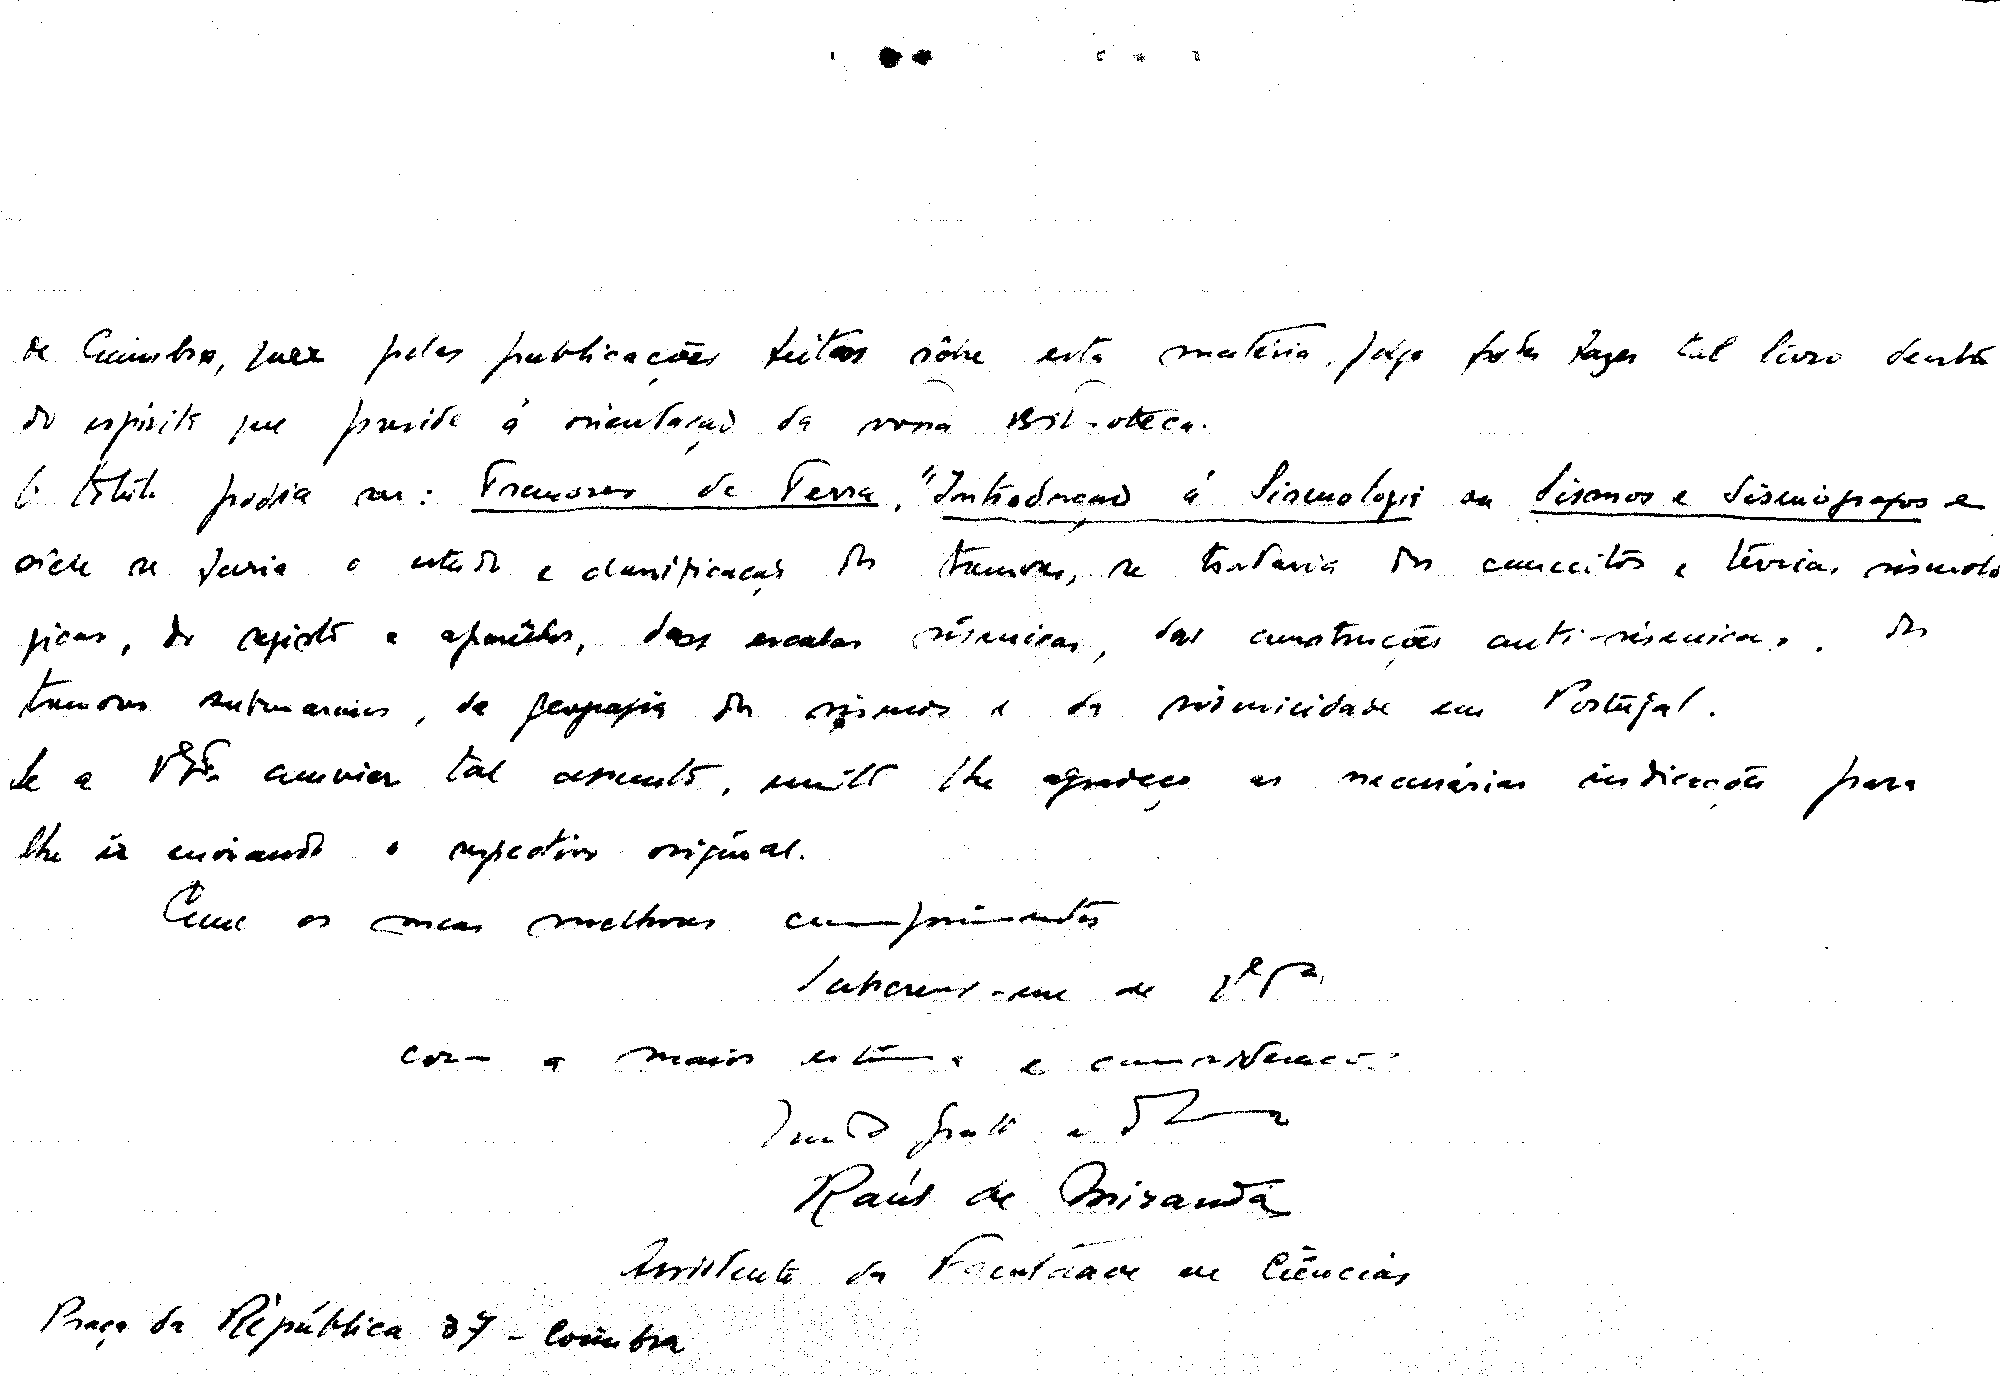 de Coimbra, quer pelas publicações feitas sôbre esta matéria, julgo poder fazer tal livro dentro
do espírito que preside á orientação da nossa Biblioteca.
O titulo podia ser: Tremores de Terra, "Introdução á Sismologia ou Sismos e Sismógrafos e
nêle se faria o estudo e classificação dos tremores, se trataria dos conceitos e teorias sismoló
gicas, do registo e aparêlhos, das escalas sísmicas, das construções anti-sísmicas, dos
tremores submarinos, da geografia dos sismos e da sismicidade em Portugal.
Se a V. Ex.ª convier tal assunto, muito lhe agradeço as necessárias indicações para
lhe ir enviando o respectivo original.
Com os meus melhores cumprimentos
Subscrevo-me de V. Ex.ª
com a maior estima e consideração
muito grato e
Raúl de Miranda
Assistente da Faculdade de Ciências
Praça da República 37 - Coimbra